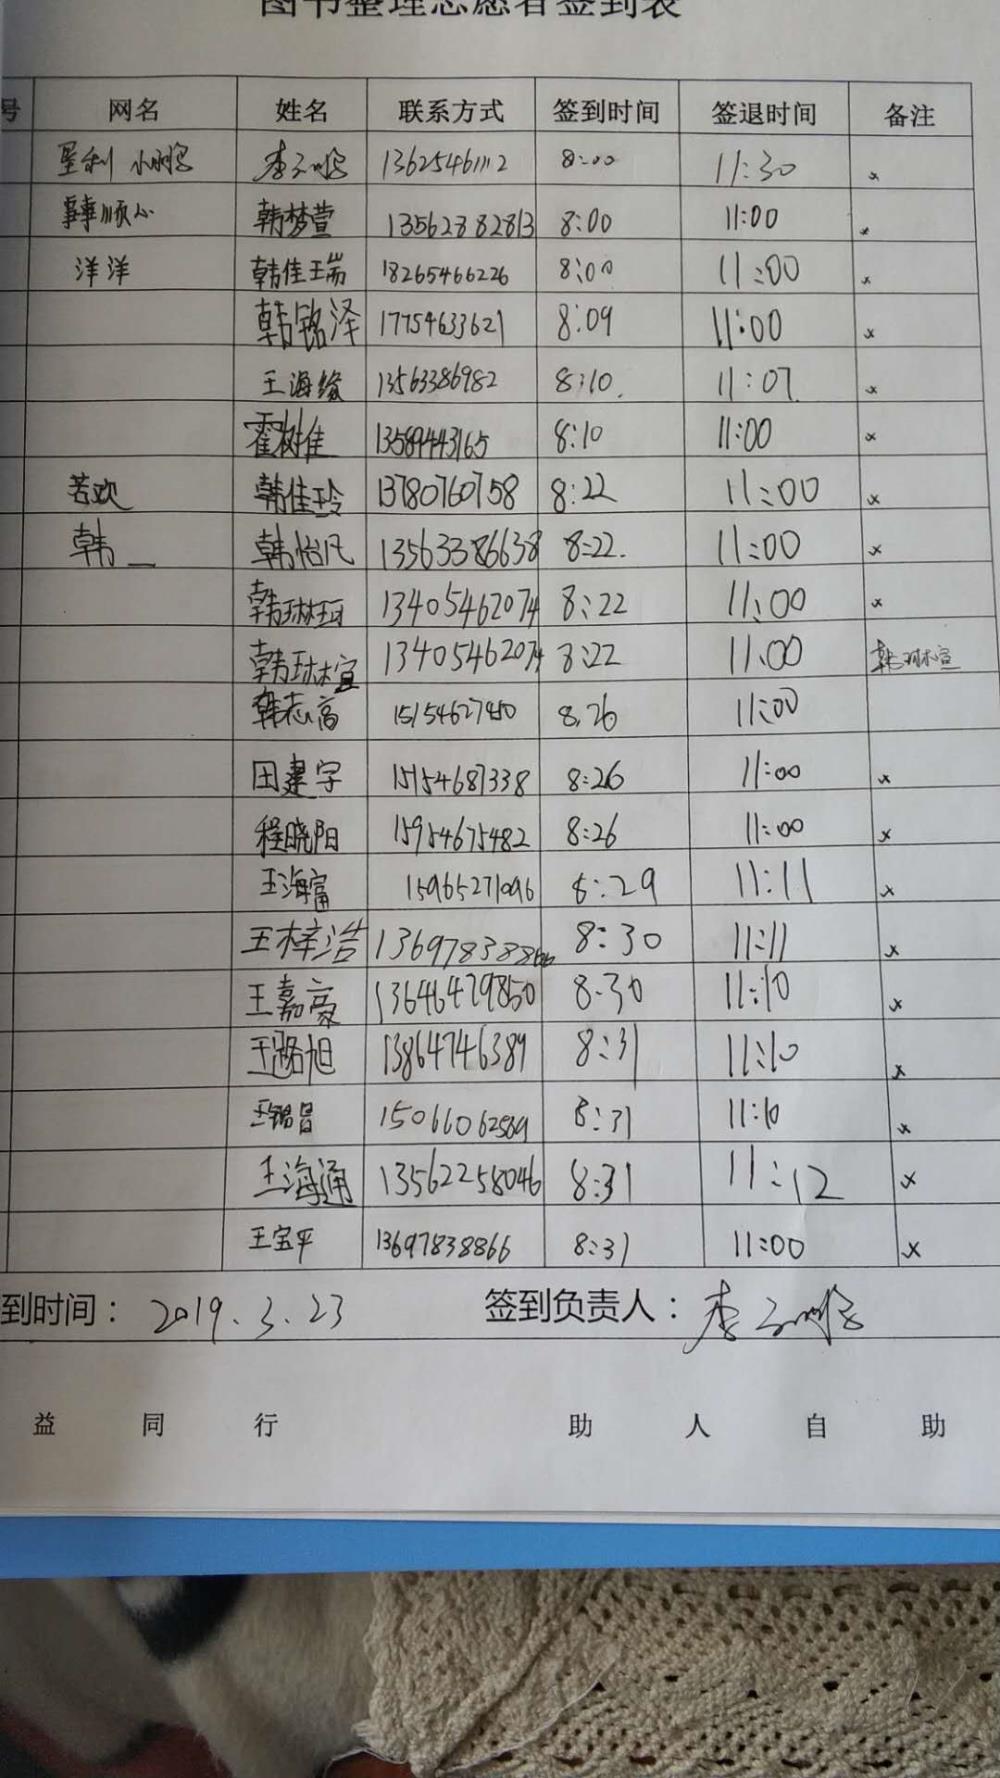 图书整理志愿者签到表
号 网名 姓名 联系方式 签到时间 签退时间 备注
13625461112 8:00 11:30 x
事事顺心 韩梦萱 13562882813 8:00 11:00 x
洋洋 韩佳瑞 18265466226 8:00 11:00 x
韩铭泽 17754633621 8:09 11:00 x
王海缘 13563386982 8:10. 11:07 x
霍树佳 13589443165 8:10 11:00 x
若欢 韩佳玲 13780760758 8:22 11:00 x
韩_ 韩怡凡 13563386638 8:22. 11:00 x
韩琳珂 13405462074 8:22 11:00 x
韩琳宣 13405462074 8:22 11:00 韩琳宣
韩志高 15154627450 8:26 11:00
田建宇 15154687338 8:26 11:00 x
程晓阳 15954675482 8:26 11:00 x
王海富 15965271096 8:29 11:11 x
王梓浩 13697838866 8:30 11:11 x
王嘉豪 13646429850 8:30 11:10 x
王璐旭 13864746389 8:31 11:10 x
王铭昌 15066062569 8:31 11:10 x
王海通 13562258046 8:31 11:12 x
王宝平 13697838866 8:31 11:00 x
到时间： 2019.3.23 签到负责人：
益同行 助人自助